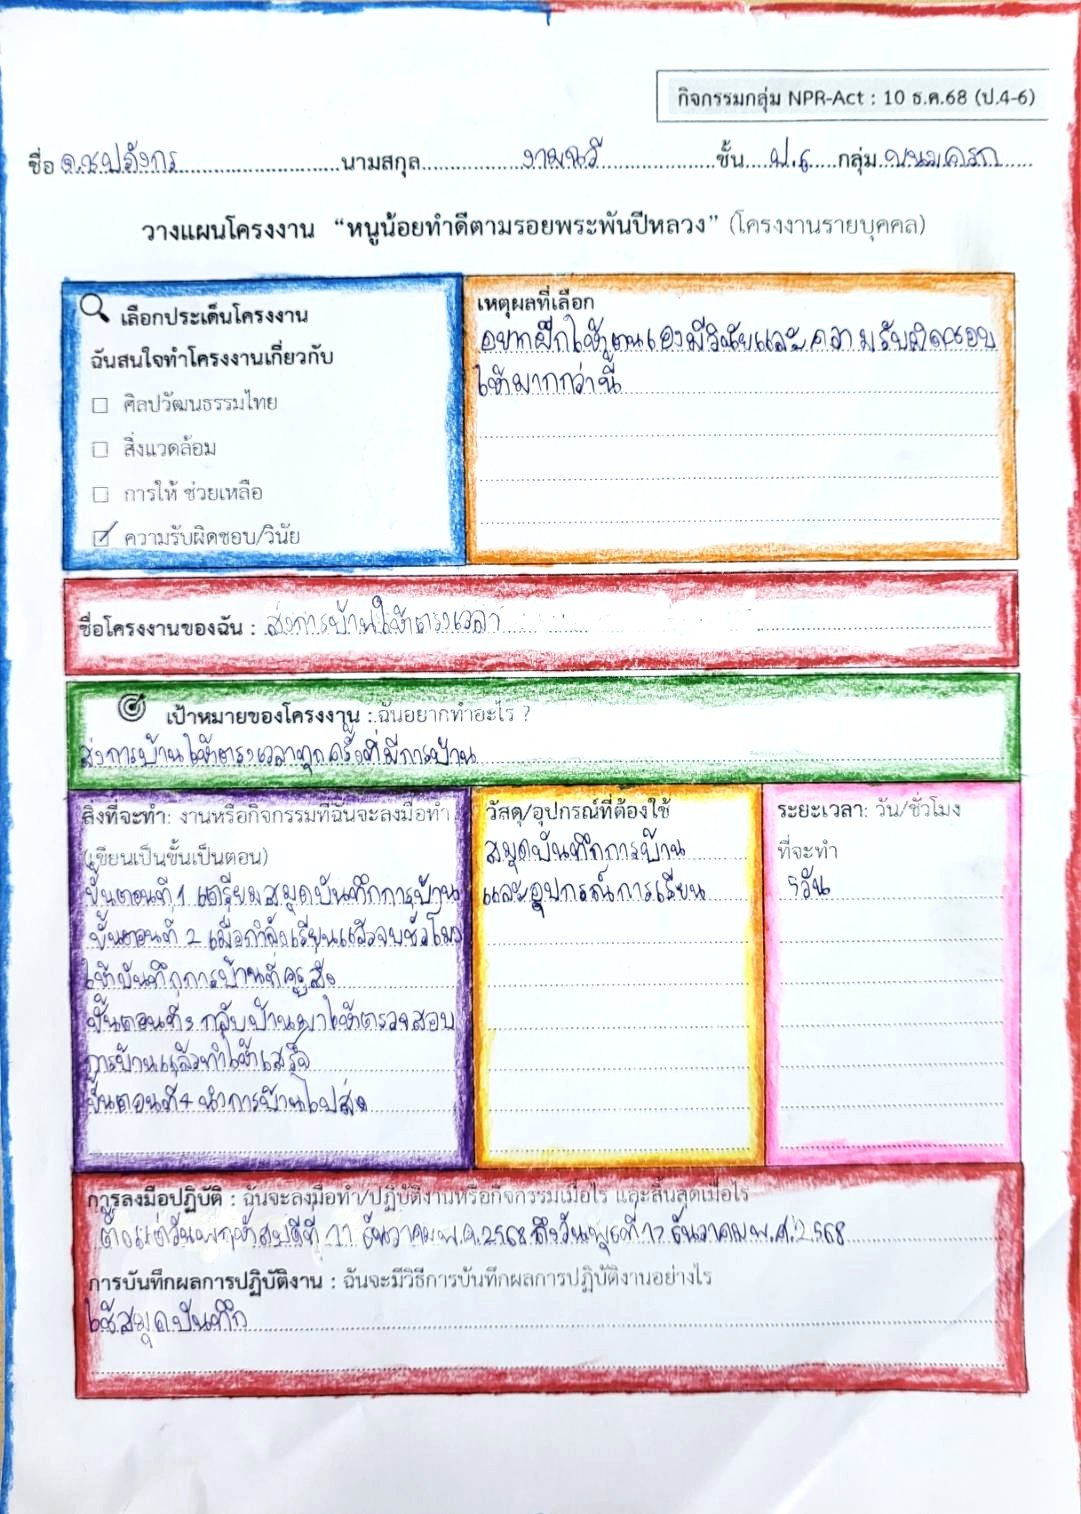 กิจกรรมกลุ่ม NPR-Act : 10 ธ.ค.68 (ป.4-6)
ชื่อ ด.ช.ปวังกร นามสกุล งามฉวี ชั้น ป.6 กลุ่ม ขนมครก
วางแผนโครงงาน “หนูน้อยทำดีตามรอยพระพันปีหลวง” (โครงงานรายบุคคล)
เลือกประเด็นโครงงาน
ฉันสนใจทำโครงงานเกี่ยวกับ
☐ ศิลปวัฒนธรรมไทย
☐ สิ่งแวดล้อม
☐ การให้ ช่วยเหลือ
☑ ความรับผิดชอบ/วินัย
เหตุผลที่เลือก
อยากฝึกให้ตนเองมีวินัยและความรับผิดชอบ
ให้มากกว่านี้
ชื่อโครงงานของฉัน : ส่งการบ้านให้ตรงเวลา
เป้าหมายของโครงงาน : ฉันอยากทำอะไร ?
ส่งการบ้านให้ตรงเวลาทุกครั้งที่มีการบ้าน
สิ่งที่จะทำ: งานหรือกิจกรรมที่ฉันจะลงมือทำ
(เขียนเป็นขั้นเป็นตอน)
ขั้นตอนที่ 1 เตรียมสมุดบันทึกการบ้าน
ขั้นตอนที่ 2 เมื่อกำลังเรียนแล้วจบชั่วโมง
ให้บันทึกการบ้านที่ครูสั่ง
ขั้นตอนที่ 3 กลับบ้านมาให้ตรวจสอบ
การบ้านแล้วทำให้เสร็จ
ขั้นตอนที่ 4 นำการบ้านไปส่ง
วัสดุ/อุปกรณ์ที่ต้องใช้
สมุดบันทึกการบ้าน
และอุปกรณ์การเรียน
ระยะเวลา: วัน/ชั่วโมง
ที่จะทำ
5วัน
การลงมือปฏิบัติ : ฉันจะลงมือทำ/ปฏิบัติงานหรือกิจกรรมเมื่อไร และสิ้นสุดเมื่อไร
ตั้งแต่วันพฤหัสบดีที่ 11 ธันวาคม พ.ศ.2568 ถึงวันพุธที่ 17 ธันวาคม พ.ศ.2568
การบันทึกผลการปฏิบัติงาน : ฉันจะมีวิธีการบันทึกผลการปฏิบัติงานอย่างไร
ใช้สมุดบันทึก